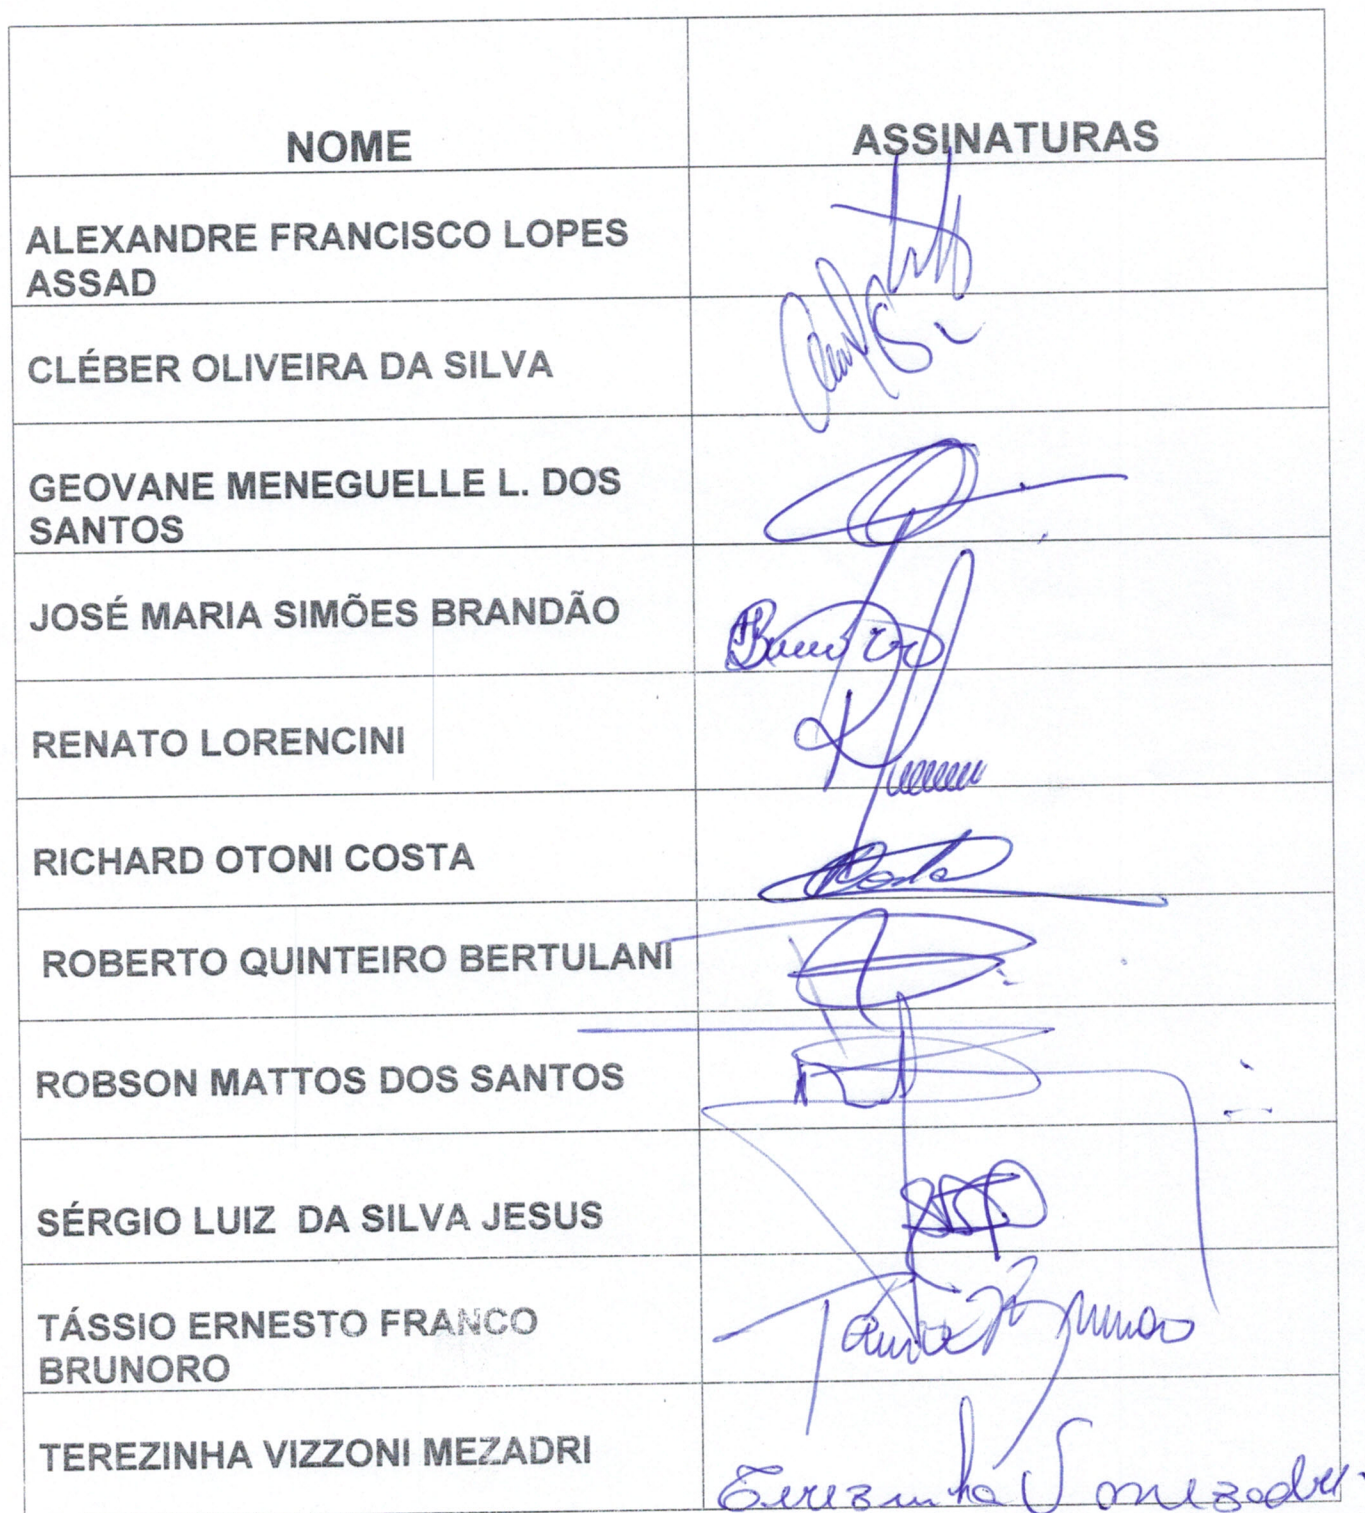 NOME
ASSINATURAS
ALEXANDRE FRANCISCO LOPES
ASSAD
CLÉBER OLIVEIRA DA SILVA
GEOVANE MENEGUELLE L. DOS
SANTOS
JOSÉ MARIA SIMÕES BRANDÃO
RENATO LORENCINI
RICHARD OTONI COSTA
Costa
ROBERTO QUINTEIRO BERTULANI
ROBSON MATTOS DOS SANTOS
SÉRGIO LUIZ DA SILVA JESUS
TÁSSIO ERNESTO FRANCO
BRUNORO
TEREZINHA VIZZONI MEZADRI
Terezinha V Mezadri